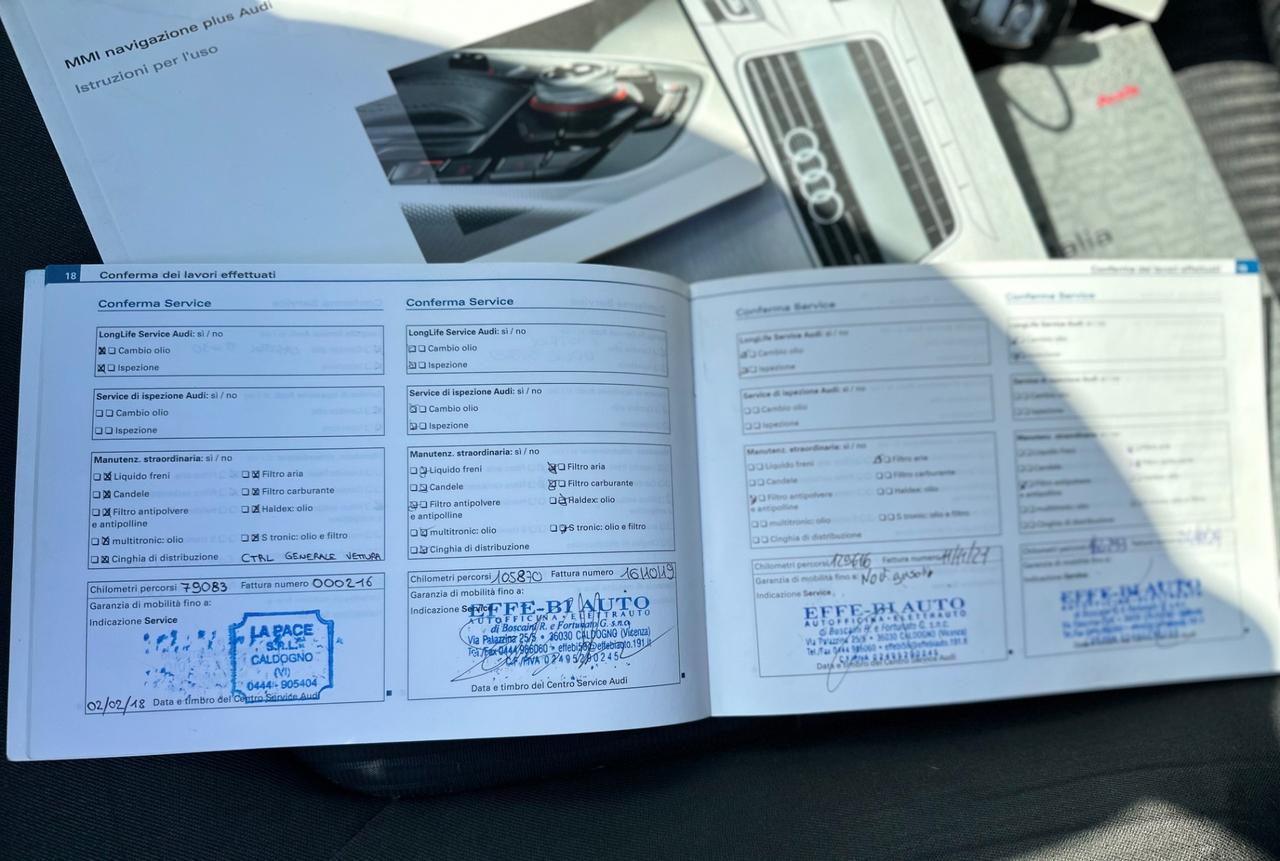 MMI navigazione plus Audi
Istruzioni per l'uso
Audi
alia
18 Conferma dei lavori effettuati
Conferma Service
LongLife Service Audi: sì / no
Cambio olio
Ispezione
Service di ispezione Audi: sì / no
Cambio olio
Ispezione
Manutenz. straordinaria: sì / no
Liquido freni
Filtro aria
Candele
Filtro carburante
Filtro antipolvere
e antipolline
Haldex: olio
multitronic: olio
S tronic: olio e filtro
Cinghia di distribuzione
CTRL GENERALE VETTURA
Chilometri percorsi 79083 Fattura numero 000216
Garanzia di mobilità fino a:
Indicazione Service
LA PACE
S.R.L.
CALDOGNO
(VI)
0444-905404
02/02/18 Data e timbro del Centro Service Audi
Conferma Service
LongLife Service Audi: sì / no
Cambio olio
Ispezione
Service di ispezione Audi: sì / no
Cambio olio
Ispezione
Manutenz. straordinaria: sì / no
Liquido freni
Filtro aria
Candele
Filtro carburante
Filtro antipolvere
e antipolline
Haldex: olio
multitronic: olio
S tronic: olio e filtro
Cinghia di distribuzione
Chilometri percorsi 105870 Fattura numero
Garanzia di mobilità fino a:
Indicazione Service
EFFE-BI AUTO
AUTOFFICINA • ELETTRAUTO
di Boscaini R. e Fortunato G. s.n.c.
Via Palazzina 25/5 • 36030 CALDOGNO (Vicenza)
Tel./Fax 0444 986060 •
C.F./P.IVA
Data e timbro del Centro Service Audi
Conferma dei lavori effettuati
Conferma Service
LongLife Service Audi: sì / no
Cambio olio
Ispezione
Service di ispezione Audi: sì / no
Cambio olio
Ispezione
Manutenz. straordinaria: sì / no
Liquido freni
Filtro aria
Candele
Filtro carburante
Filtro antipolvere
e antipolline
Haldex: olio
multitronic: olio
S tronic: olio e filtro
Cinghia di distribuzione
Chilometri percorsi Fattura numero
Garanzia di mobilità fino a:
Indicazione Service
EFFE-BI AUTO
AUTOFFICINA • ELETTRAUTO
di Boscaini R. e Fortunato G. s.n.c.
Via Palazzina 25/5 • 36030 CALDOGNO (Vicenza)
Data e timbro del Centro Service Audi
Conferma Service
Manutenz. straordinaria: sì / no
Cinghia di distribuzione
EFFE-BI AUTO